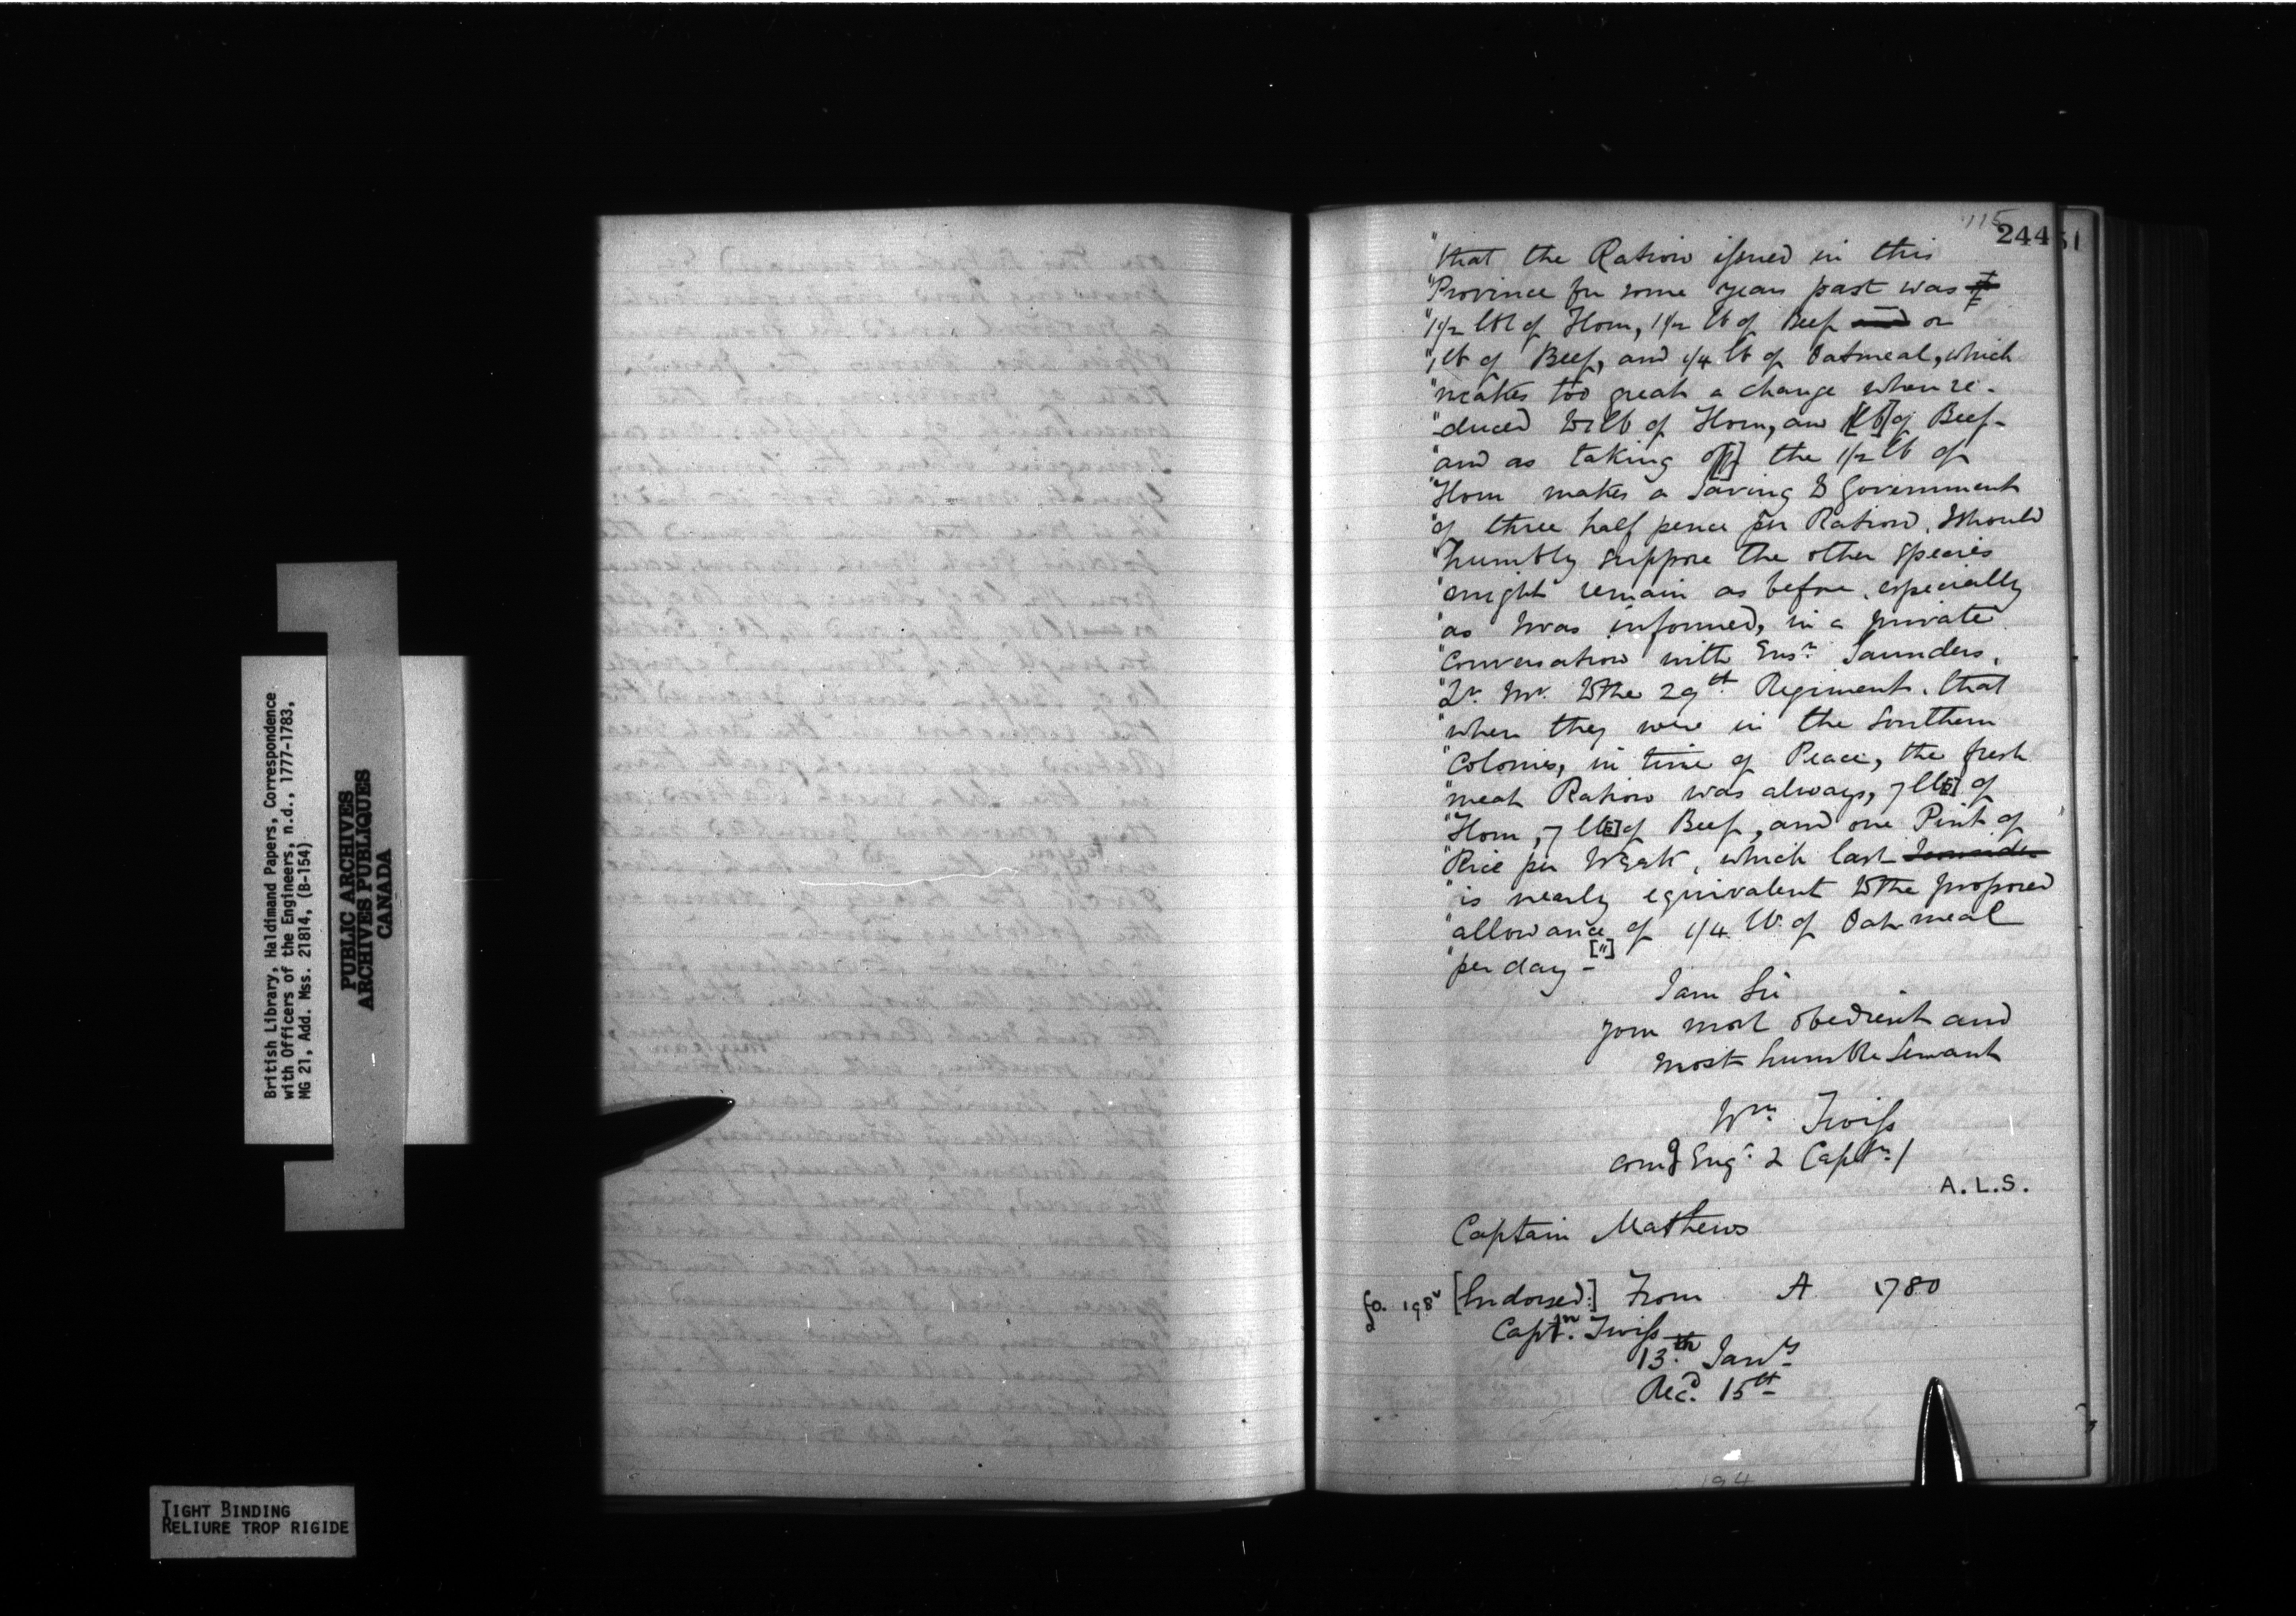 115
244
51
"that the Ration issued in this
"Province for some years past was
"1 1/2 lbs of Flour, 1 1/2 lb of Beef and or
"1 lb of Beef, and 1/4 lb of Oatmeal, which
"makes too great a change when re-
"duced to 1 lb of Flour, and 1 [lb] of Beef-
"and as taking of[f] the 1/2 lb of
"Flour makes a Saving to Government
"of three half pence per Ration, I should
"humbly suppose the other Species
"might remain as before, especially
"as I was informed, in a private
"Conversation with Ensn. Saunders,
"Qr. Mr. to the 29th Regiment, that
"when they were in the Southern
"Colonies, in time of Peace, the fresh
"meat Ration was always, 7 lb[s] of
"Flour, 7 lb[s] of Beef, and one Pint of
"Rice per Week, which last
"is nearly equivalent to the proposed
"allowance of 1/4 lb. of Oatmeal
"per day - ["]
I am Sir
your most obedient and
most humble Servant
Wm. Twiss
comg Engr. & Captn./
A.L.S.
Captain Mathews
fo. 198v [Endorsed:] From A 1780
Captn. Twiss
13th. Jany
Recd. 15th
194
British Library, Haldimand Papers, Correspondence
with Officers of the Engineers, n.d., 1777-1783,
MG 21, Add. Mss. 21814, (B-154)
PUBLIC ARCHIVES
ARCHIVES PUBLIQUES
CANADA
TIGHT BINDING
RELIURE TROP RIGIDE